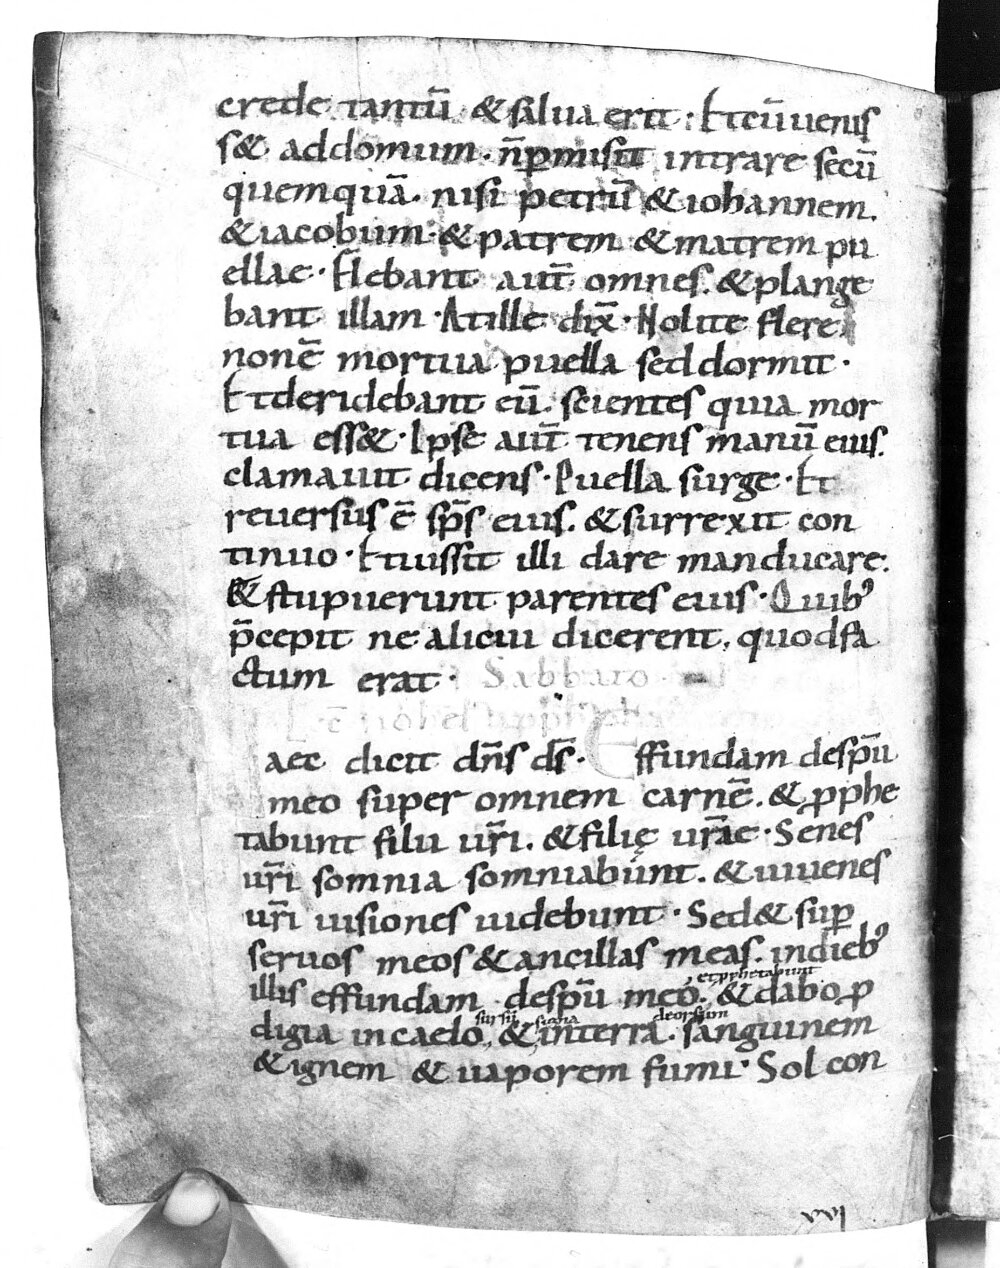 crede tantū & salua erit. Et cū uenis
s& addomum. n̄ p̄misit intrare secū
quemquā. nisi petrū & iohannem.
& iacobum & patrem & matrem pu
ellae. Flebant aut̄ omnes. & plange
bant illam. At ille dix̄. Nolite flere
non ē mortua puella sed dormit.
Et deridebant eū. scientes quia mor
tua ess&. Ipse aut̄ tenens manū eius.
clamauit dicens. Puella surge. Et
reuersus ē sp̄s eius. & surrexit con
tinuo. Et iussit illi dare manducare.
& stupuerunt parentes eius. Quibꝰ
p̄cepit ne alicui dicerent. quod fa
ctum erat. Sabbato
L. ē iohel
aec dicit dn̄s ds̄. Effundam de spū
meo super omnem carnē. & ꝓphe
tabunt filii ur̄i. & filię ur̄ae. Senes
ur̄i somnia somniabunt. & iuuenes
ur̄i uisiones uidebunt. Sed & suꝑ
seruos meos & ancillas meas. in diebꝰ
et pphetabunt
illis effundam de spū meo. & dabo ꝓ
sursū signa deorsum
digia in caelo, & in terra. sanguinem
& ignem & uaporem fumi. Sol con
xvi